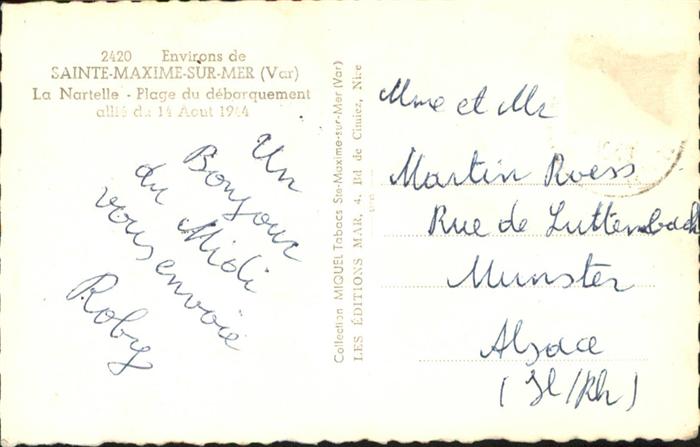 2420 Environs de
SAINTE-MAXIME-SUR-MER (Var)
La Nartelle - Plage du débarquement
allié du 14 Aout 1944
Un
Bonjour
du Midi
vous envoie
Roby
Collection MIQUEL Tabacs Ste-Maxime-sur-Mer (Var)
LES ÉDITIONS MAR, 4, Bd de Cimiez, Nice
Mme et Mr
Martin Roess
Rue de Luttenbach
Munster
Alsace
(Ht/Rh)